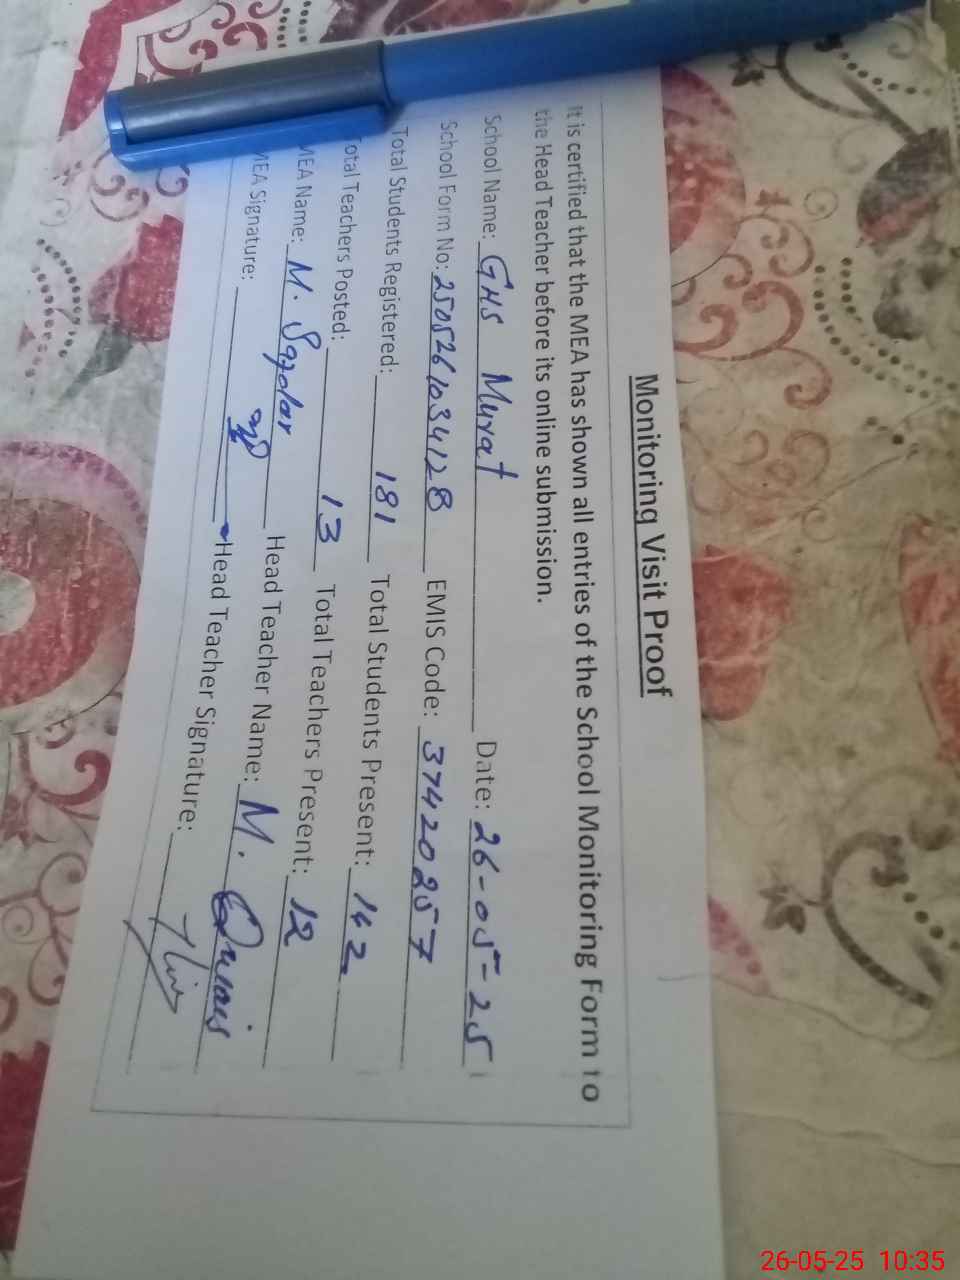 Monitoring Visit Proof
It is certified that the MEA has shown all entries of the School Monitoring Form to
the Head Teacher before its online submission.
School Name: GHS Murat Date: 26-05-25
School Form No: 2505261034128 EMIS Code: 37420257
Total Students Registered: 181 Total Students Present: 142
Total Teachers Posted: 13 Total Teachers Present: 12
MEA Name: M. Head Teacher Name: M.
MEA Signature: Head Teacher Signature:
26-05-25 10:35